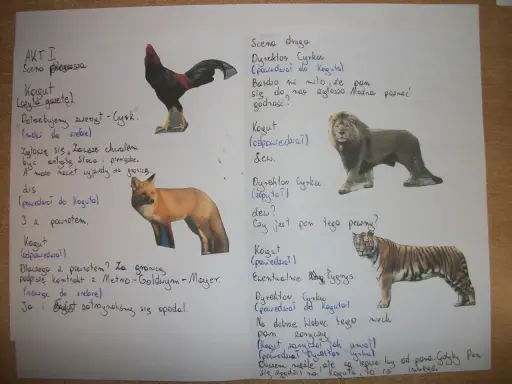 AKT I
Scena pierwsza
Kogut
(czyta gazetę)
Potrzebujemy zwierząt - Cyrk.
(mówi do siebie)
Zgłoszę się. Zawsze chciałem
być artystą. Sława i pieniądze.
A może nawet wyjazdy za granicę.
Lis
(powiedział do Koguta)
I z powrotem.
Kogut
(odpowiedział)
Dlaczego z powrotem? Za granicą
podpiszę kontrakt z Metro-Goldwyn-Mayer.
(mówiąc do siebie)
Ja i zatrzymaliśmy się opodal.
Scena druga
Dyrektor Cyrku
(powiedział do Koguta)
Bardzo mi miło, że pan
się do nas zgłosił. Można poznać
godność?
Kogut
(odpowiedział)
Lew.
Dyrektor Cyrku
(zapytał)
Lew?
Czy jest pan tego pewny?
Kogut
(powiedział)
Ewentualnie Tygrys.
Dyrektor Cyrku
(powiedział do Koguta)
No dobrze. Wobec tego niech
pan zaryczy
(Kogut zaryczał jak umiał)
(powiedział Dyrektor Cyrku)
Owszem nieźle, ale są lepsze lwy od pana. Gdyby Pan
się zgodził na Koguta, to co innego